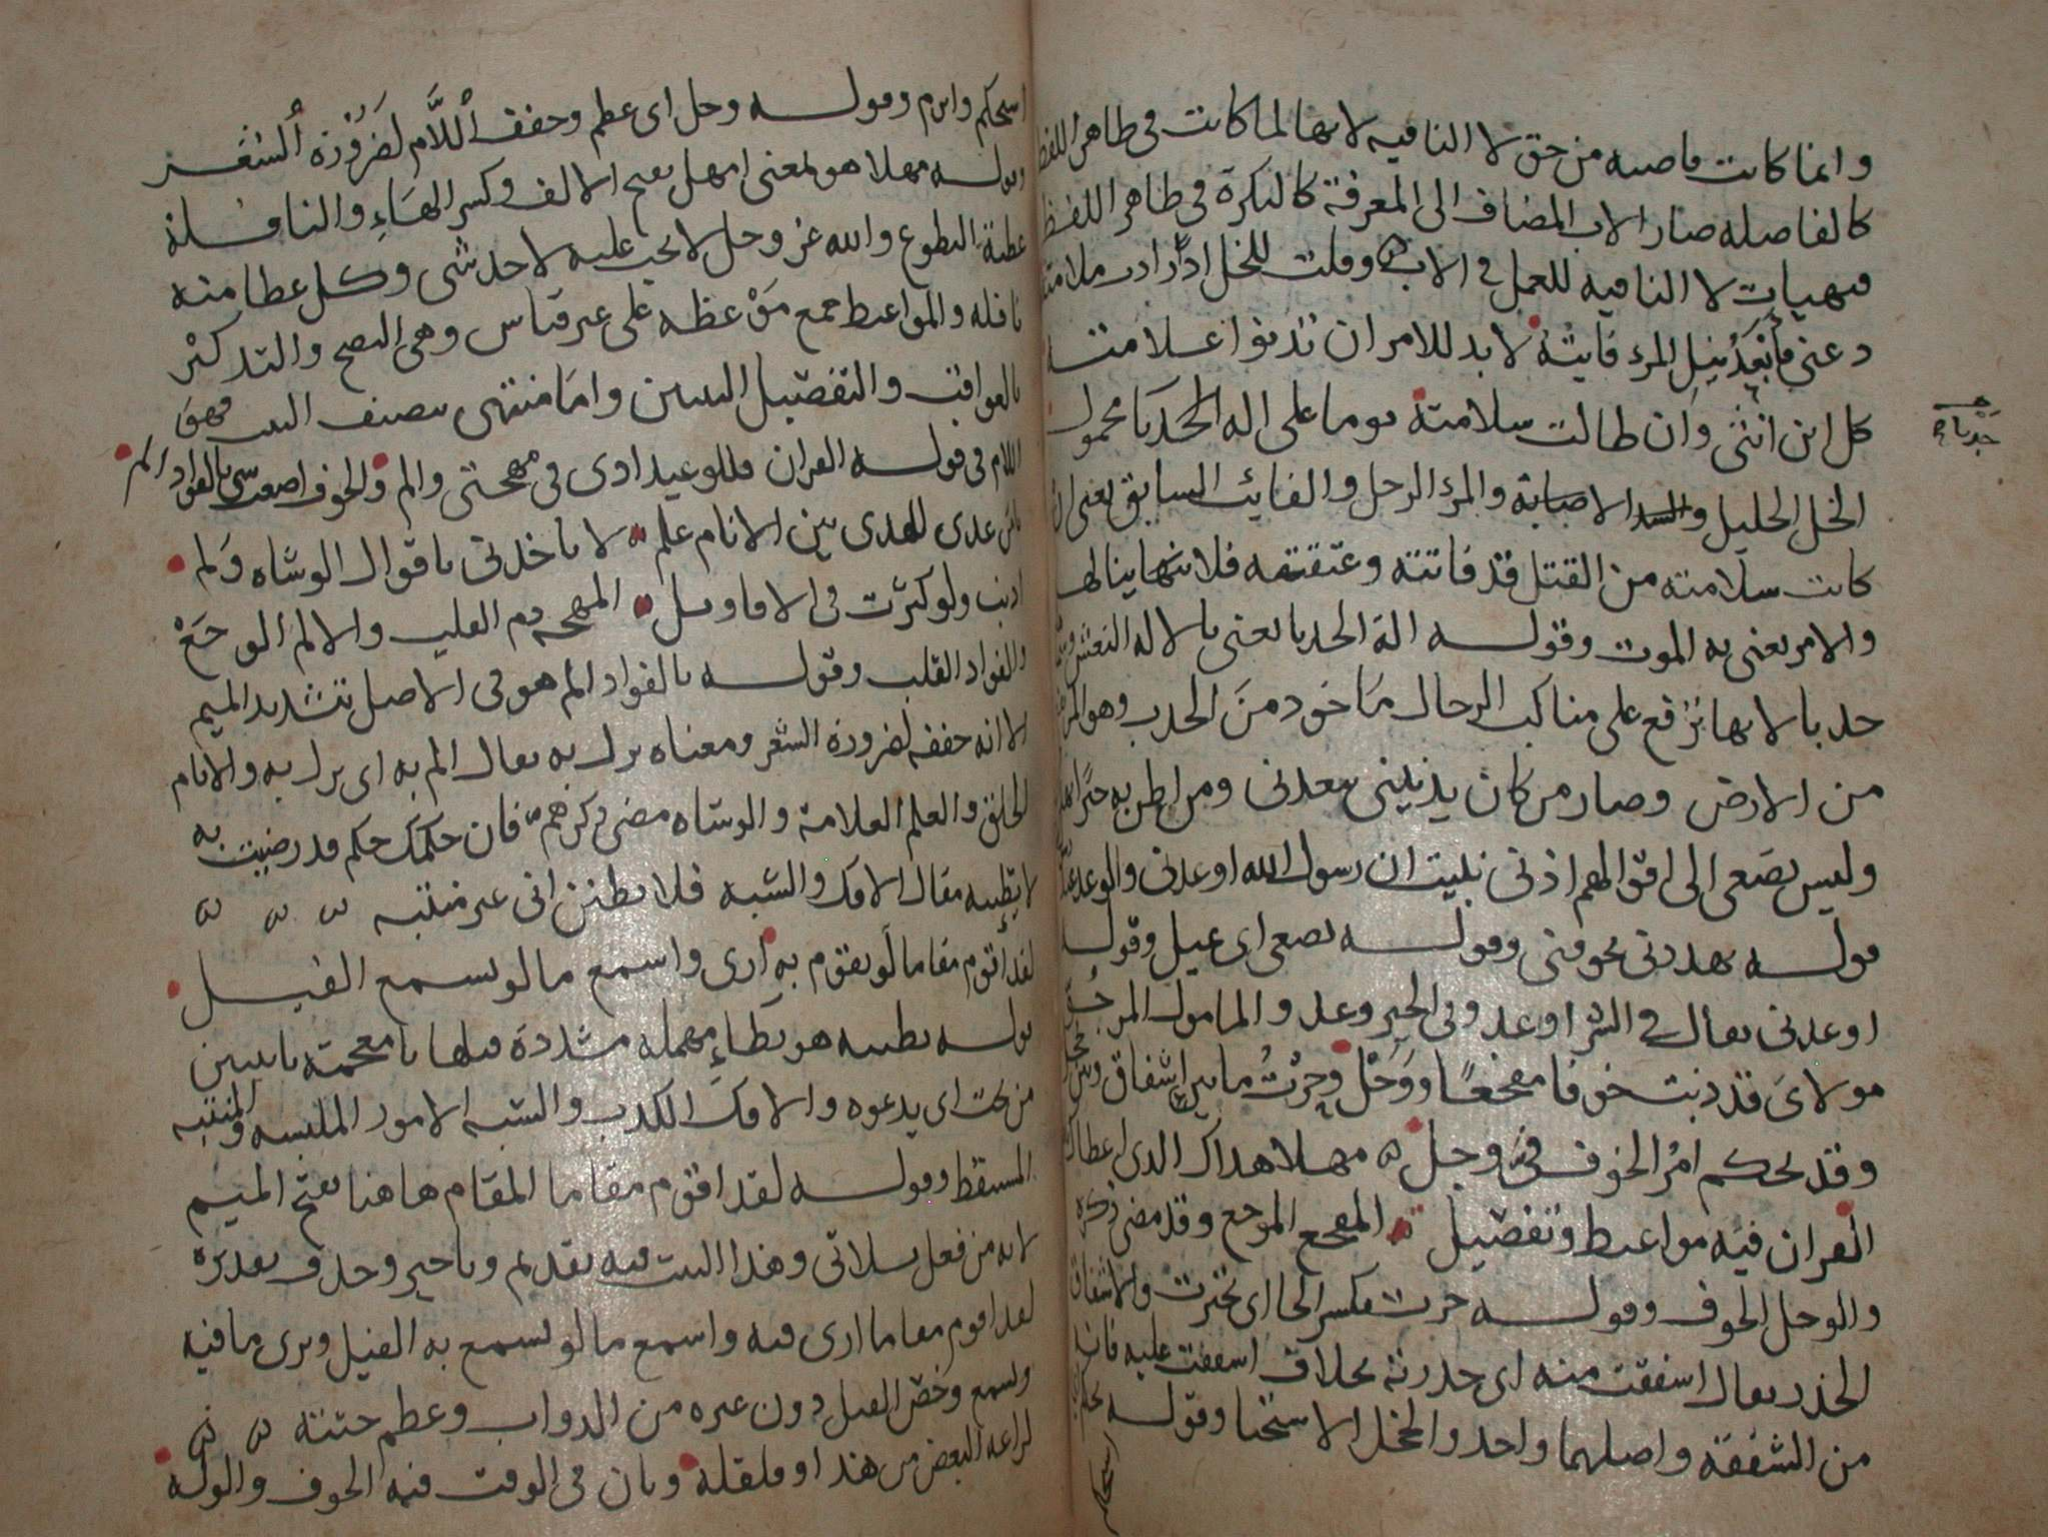 وانما كانت فاصله من حق لا النافيه لانها لما كانت فى ظاهر اللفظ
كالفاصله صار الاب المضاف الى المعرفة كالنكرة فى ظاهر اللفظ
فهيات لا النافيه للعمل فى الاب وقلت للخل اذ ادر ملامته
دعنى فأبعد نيل المرء فايته لا بد للامر ان تدنوا علامته
كل ابن انثى وان طالت سلامته يوما على اله الحدبا محمول
حدباء
الخل الخليل والسد الاصابة والمرء الرجل والفايت السابق يعنى ان
كانت سلامته من القتل قد فاتته وعتقته فلا نتها ينالها
والامر يعنى به الموت وقوله الة الحدبا يعنى بالاله النعش
حدبا لانها ترفع على مناكب الرجال ماخود من الحدب وهو المرتفع
من الارض وصار من كان يدنينى يبعدنى ومن اطن به خيرا
وليس يصغى الى افق الهم اذنى نبيت ان رسول الله اوعدنى والوعد عند
قوله يهددنى يخوفنى وقوله يصغى اى يميل وقوله
اوعدنى يعال فى الشر اوعد وفى الخير وعد والمامول المرجو
مولاى قد ذبت خوفا مفجعا ووجل وحرت ما بين اشفاق
وقد لحكم امر الخوف فى وجل مهلا هداك الدى اعطاك
القران فيه مواعيط وتفصيل المفجع الموجع وقد مضى ذكره
والوجل الخوف وقوله حرت بكسر الحا اى تحيرت والاشفاق
الحذر يعال اشفقت منه اى حذرته بخلاف اشفقت عليه فانه
من الشفقة واصلهما واحد والخجل الاستحيا وقوله
استحكم
استحكم وابرم وقوله وجل اى عظم وخفف اللام لضرورة الشعر
وقوله مهلا هو بمعنى امهل بفتح الالف وكسر الهاء والنافلة
عطية التطوع والله عز وجل لا يجب عليه لاحد شى وكل عطا منه
نافله والمواعيط جمع موعظه على غير قياس وهى النصح والتدكير
بالعواقب والتفصيل التبيين واما منتهى نصنف البيت فهو
اللام فى قوله القران فللوعيد ادى فى مهجتى والم والخوف اصعب شى بالفواد الم
يامن غدى للهدى بين الانام علم لا تاخدنى باقوال الوشاه ولم
اذنب ولو كثرت فى الاقاويل المهجه دم القلب والالم الوجع
والفواد القلب وقوله بالفواد الم هو فى الاصل بتشديد الميم
الا انه خففه لضرورة الشعر ومعناه نزل به يعال الم به اى نزل به والانام
الخلق والعلم العلامة والوشاه مضى ذكرهم فان حكمك حكم قد رضيت به
لا يطبيه مقال الافك والشبه فلا تطنن انى غير منتبه
لقد أقوم مقاما لو يقوم به ارى واسمع ما لو يسمع الفيل
قوله يطبيه هو بطاء مهمله مشددة قبلها يا معجمة باثنين
من تحت اى يدعوه والافك الكدب والشبه الامور الملبسه والمنتبه
المستيقظ وقوله لقد اقوم مقاما المقام هاهنا بفتح الميم
لانه من فعل ثلاثى وهذا البيت فيه تقديم وتاخير وحدف تقديره
لقد اقوم مقاما ارى فيه واسمع ما لو يسمع به الفيل ويرى ما فيه
ويسمع وخص الفيل دون غيره من الدواب وعظم جثته
لراعه البعض من هندا وقلقله وبان فى الوقت فيه الخوف والوله